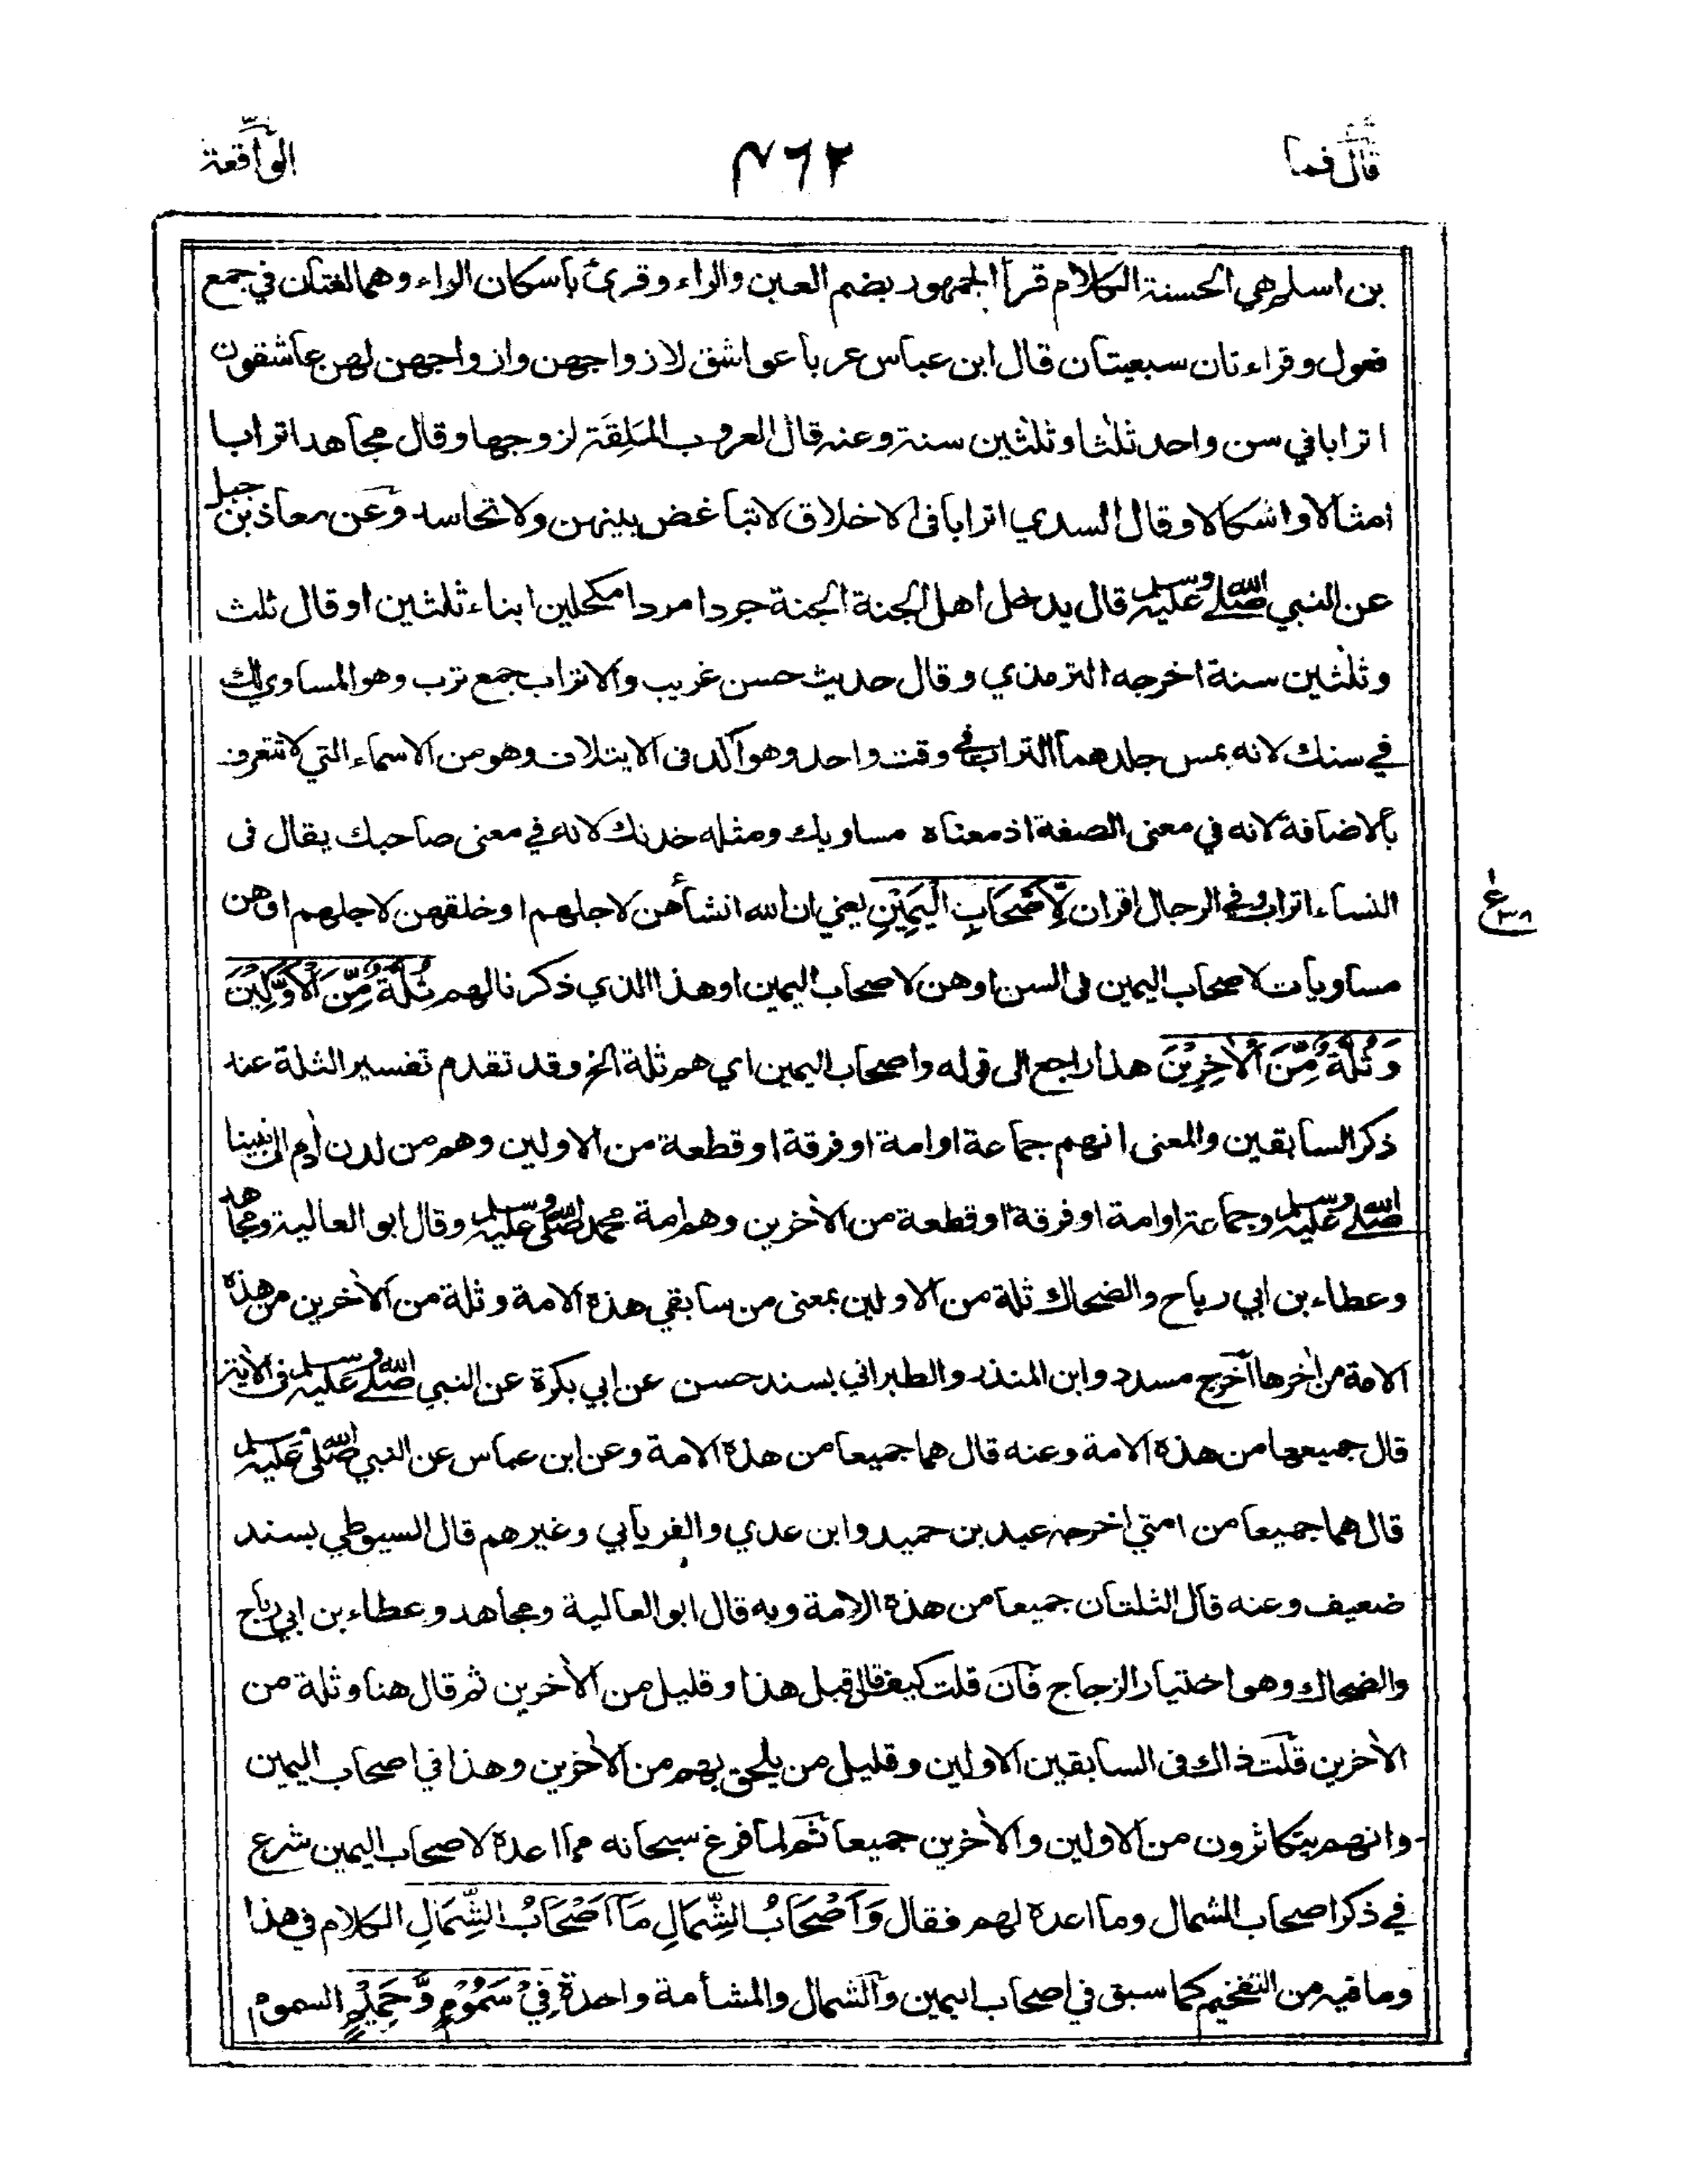 قال فما
٤٦٢
الواقعة
بن اسلم هي الحسنة الكلام قرأ الجمهور بضم العين والراء وقرئ باسكان الراء وهما لغتان في جمع
فعول وقراءتان سبعيتان قال ابن عباس عربا عواشق لازواجهن وازواجهن لهن عاشقون
اترابا في سن واحد ثلثا وثلثين سنة وعنه قال العروب المَلِقَة لزوجها وقال مجاهد اترابا
امثالا واشكالا وقال السدي اترابا في الاخلاق لاتباغض بينهن ولا تحاسد وعن معاذ بن جبل
عن النبي صلى الله عليه وسلم قال يدخل اهل الجنة الجنة جردا مردا مكحلين ابناء ثلثين او قال ثلث
وثلثين سنة اخرجه الترمذي وقال حديث حسن غريب والاتراب جمع ترب وهو المساوي لك
في سنك لانه يمس جلدهما التراب في وقت واحد وهو آكد في الايتلاف وهو من الاسماء التي لا تتعرف
بالاضافة لانه في معنى الصفة اذ معناه مساويك ومثله خدنك لانه في معنى صاحبك يقال في
النساء اتراب وفي الرجال اقران لِّاَصْحَابِ الْيَمِيْنِ يعني ان الله انشأهن لاجلهم او خلقهن لاجلهم او هن
ع
٣٨
مساويات لاصحاب اليمين في السن او هن لاصحاب اليمين او هذا الذي ذكرنا لهم ثُلَّةٌ مِّنَ الْاَوَّلِيْنَ
وَثُلَّةٌ مِّنَ الْاٰخِرِيْنَ هذا راجع الى قوله واصحاب اليمين اي هم ثلة الخ وقد تقدم تفسير الثلة عند
ذكر السابقين والمعنى انهم جماعة او امة او فرقة او قطعة من الاولين وهم من لدن أدم الى نبينا
صلى الله عليه وسلم وجماعة او امة او فرقة او قطعة من الأخرين وهم امة محمد صلى الله عليه وسلم وقال ابو العالية ومجاهد
وعطاء بن ابي رباح والضحاك ثلة من الاولين بمعنى من سابقي هذه الامة وثلة من الأخرين من هذه
الامة من أخرها اخرج مسدد وابن المنذر والطبراني بسند حسن عن ابي بكرة عن النبي صلى الله عليه وسلم في الأية
قال جميعها من هذه الامة وعنه قال هما جميعا من هذه الامة وعن ابن عباس عن النبي صلى الله عليه وسلم
قال هما جميعا من امتي اخرجه عبد بن حميد وابن عدي والفريابي وغيرهم قال السيوطي بسند
ضعيف وعنه قال الثلتان جميعا من هذه الامة وبه قال ابو العالية ومجاهد وعطاء بن ابي رباح
والضحاك وهو اختيار الزجاج فان قلت كيف قال قبل هذا وقليل من الأخرين ثم قال هنا وثلة من
الأخرين قلت ذاك في السابقين الاولين وقليل من يلحق بهم من الأخرين وهذا في اصحاب اليمين
وانهم يتكاثرون من الاولين والأخرين جميعا ثم لما فرغ سبحانه مما اعده لاصحاب اليمين شرع
في ذكر اصحاب الشمال وما اعده لهم فقال وَاَصْحَابُ الشِّمَالِ مَآ اَصْحَابُ الشِّمَالِ الكلام في هذا
وما فيه من التفخيم كما سبق في اصحاب اليمين والشمال والمشأمة واحدة فِيْ سَمُوْمٍ وَّحَمِيْمٍ السموم